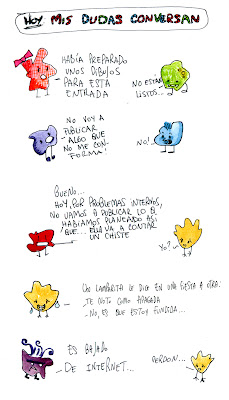 HOY MIS DUDAS CONVERSAN
HABÍA PREPARADO
UNOS DIBUJOS
PARA ESTA
ENTRADA
NO ESTÁN
LISTOS...
NO VOY A
PUBLICAR
ALGO QUE
NO ME CON-
FORMA!
NO!
BUENO...
HOY, POR PROBLEMAS INTERNOS,
NO VAMOS A PUBLICAR LO QUE
HABÍAMOS PLANEADO ASÍ
QUE... ELLA VA A CONTAR
UN CHISTE
YO?
UNA LAMPARITA LE DICE EN UNA FIESTA A OTRA:
- TE NOTO COMO APAGADA
- NO, ES QUE ESTOY FUNDIDA...
ES BAJADO
DE INTERNET...
PERDÓN...